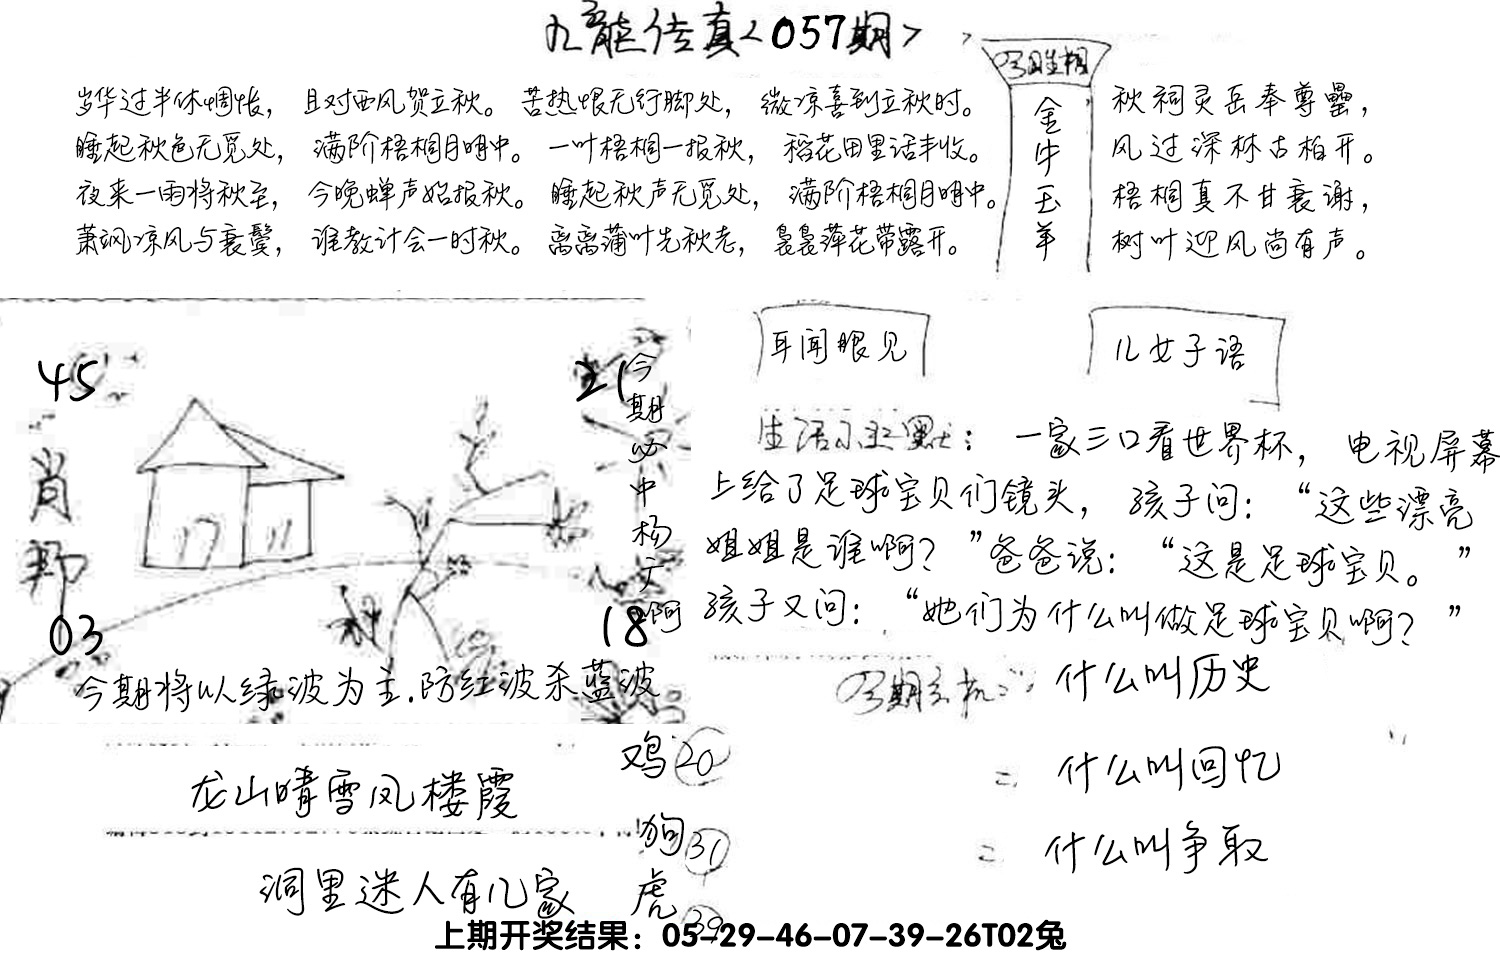 九龙传真<057期>
今期生相
岁华过半休惆怅， 且对西风贺立秋。 苦热恨无行脚处， 微凉喜到立秋时。
睡起秋色无觅处， 满阶梧桐月明中。 一叶梧桐一报秋， 稻花田里话丰收。
夜来一雨将秋至， 今晚蝉声始报秋。 睡起秋声无觅处， 满阶梧桐月明中。
萧飒凉风与衰鬓， 谁教计会一时秋。 离离蒲叶先秋老， 袅袅萍花带露开。
金牛玉羊
秋祠灵岳奉尊罍，
风过深林古柏开。
梧桐真不甘衰谢，
树叶迎风尚有声。
45
21
肖
03
18
今期必中杨广啊
今期将以绿波为主.防红波杀蓝波
耳闻眼见
儿女子语
生活小幽默： 一家三口看世界杯， 电视屏幕
上给了足球宝贝们镜头， 孩子问：“这些漂亮
姐姐是谁啊？”爸爸说：“这是足球宝贝。”
孩子又问：“她们为什么叫做足球宝贝啊？”
今期玄机：什么叫历史
什么叫回忆
什么叫争取
龙山晴雪风楼霞
洞里迷人有几家
鸡20
狗31
虎39
上期开奖结果：05-29-46-07-39-26T02兔